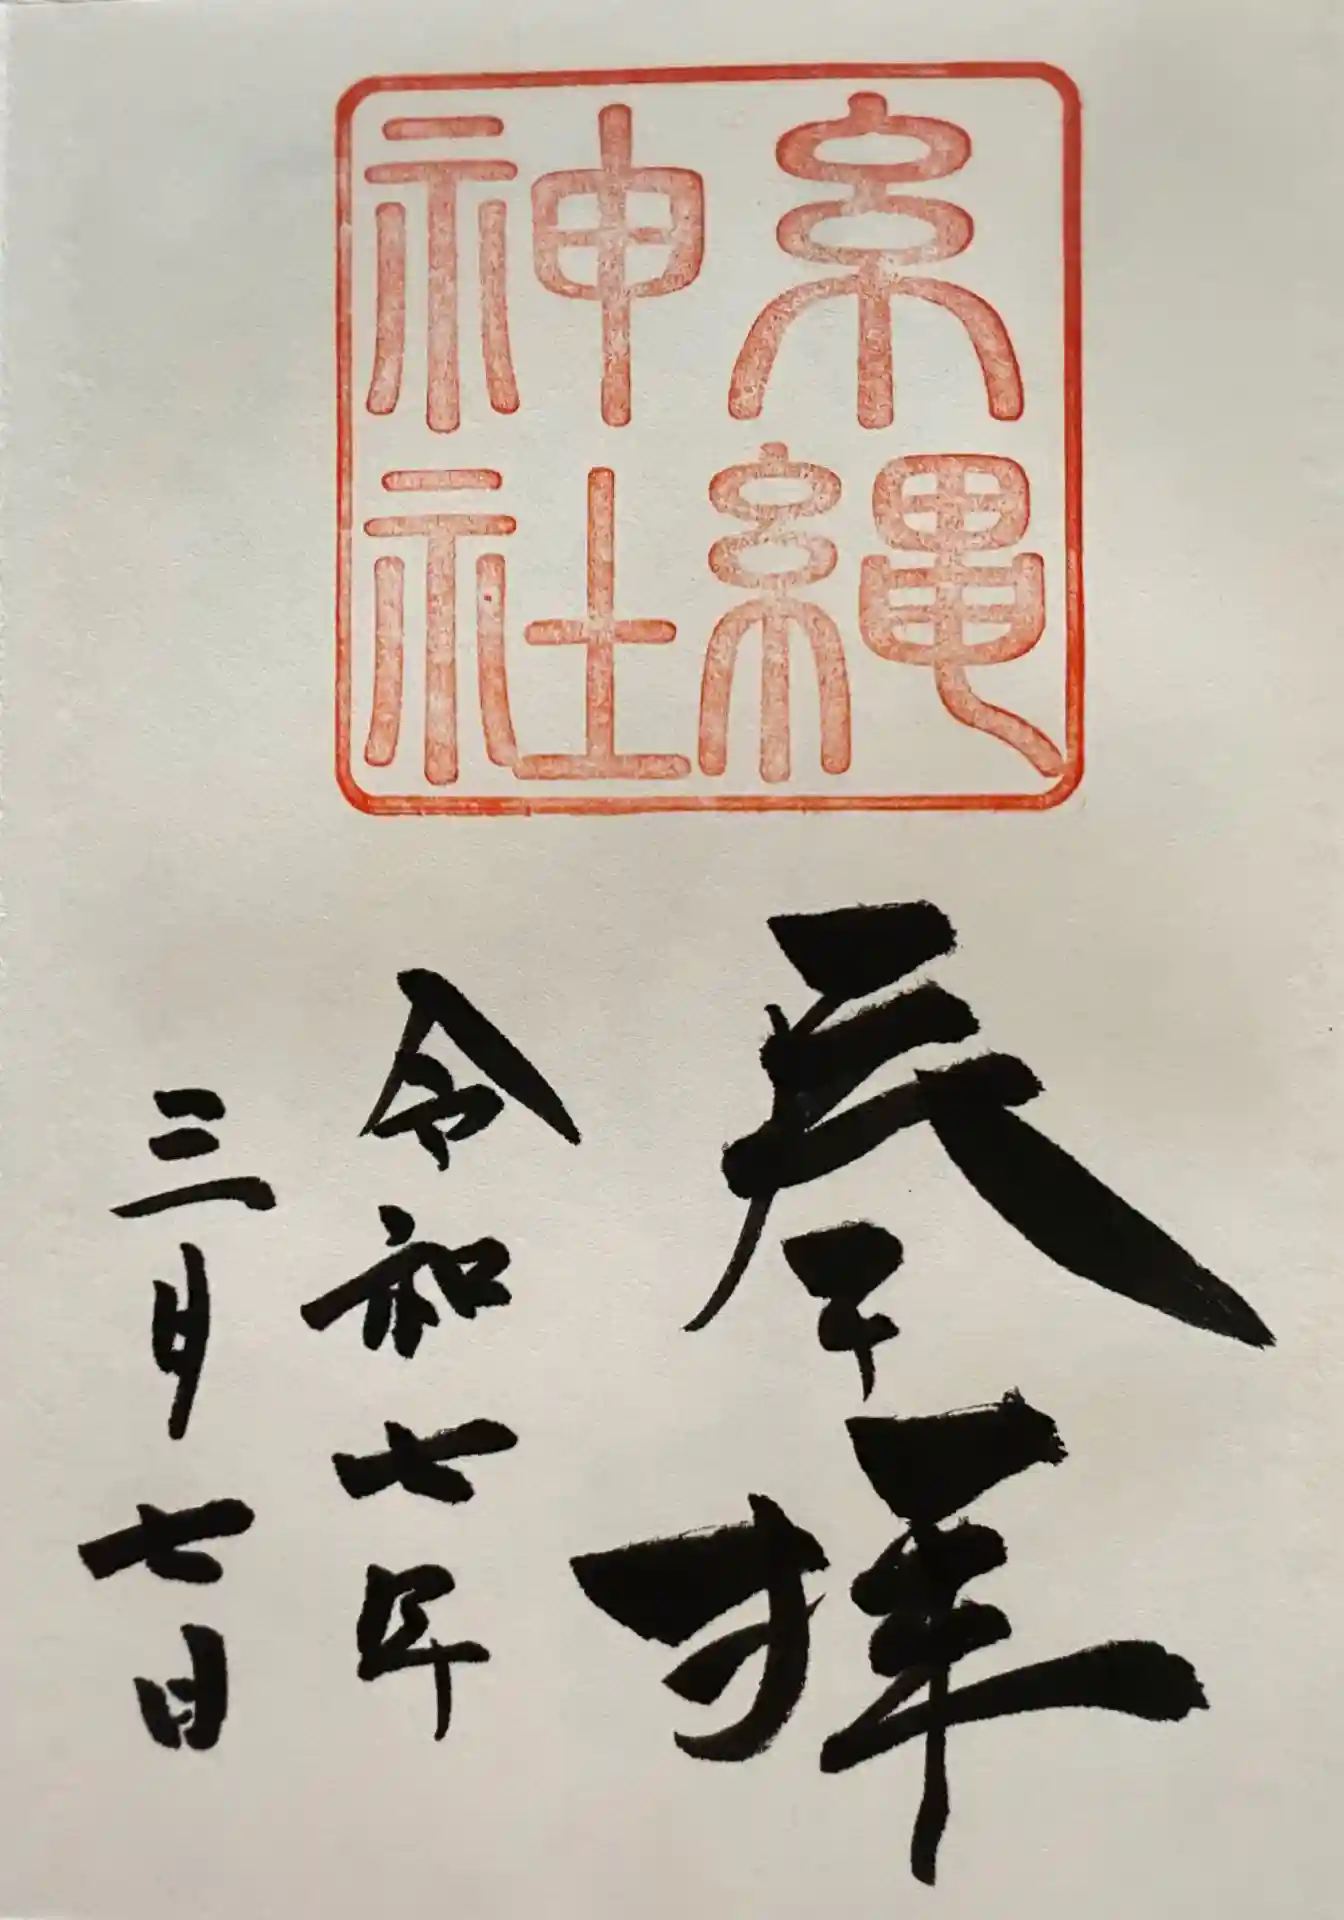 糸縄
神社
参拝
令和七年
三月七日